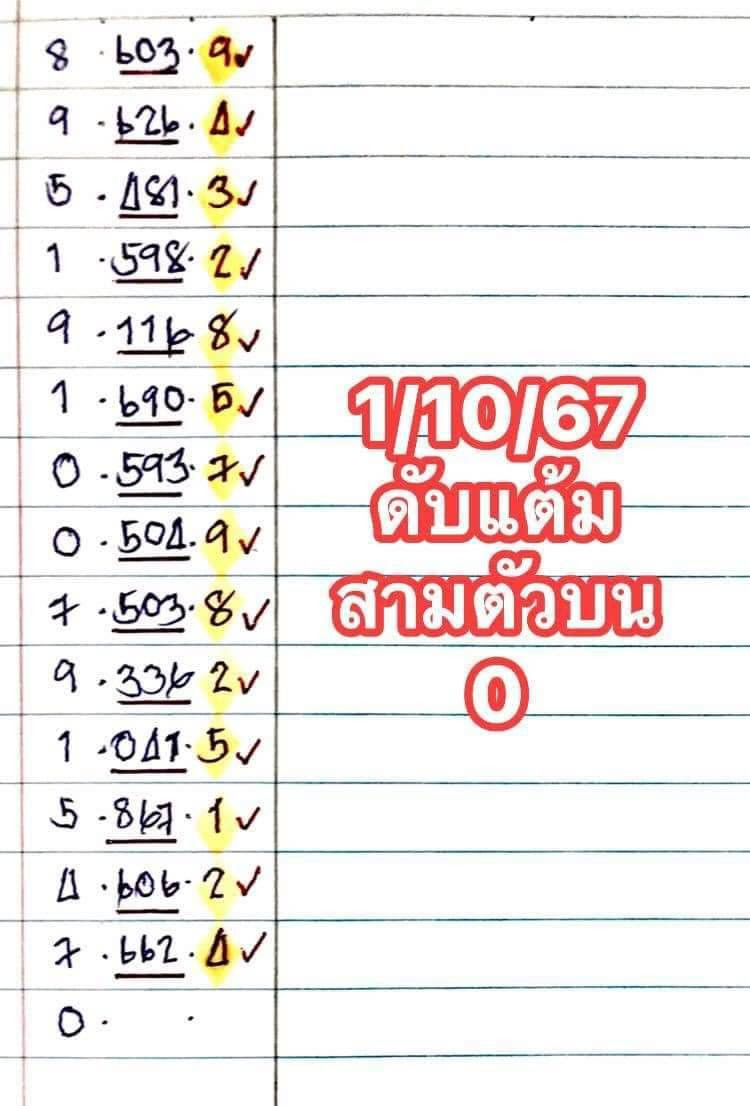 8 · 603 · 9✓
9 · 626 · 4✓
5 · 481 · 3✓
1 · 598 · 2✓
9 · 116 8✓
1 · 690 · 5✓
0 · 593 · 7✓
0 · 504 · 9✓
7 · 503 · 8✓
9 · 336 2✓
1 · 041 · 5✓
5 · 867 · 1✓
4 · 606 · 2✓
7 · 662 · 4✓
0 · ·
1/10/67
ดับแต้ม
สามตัวบน
0